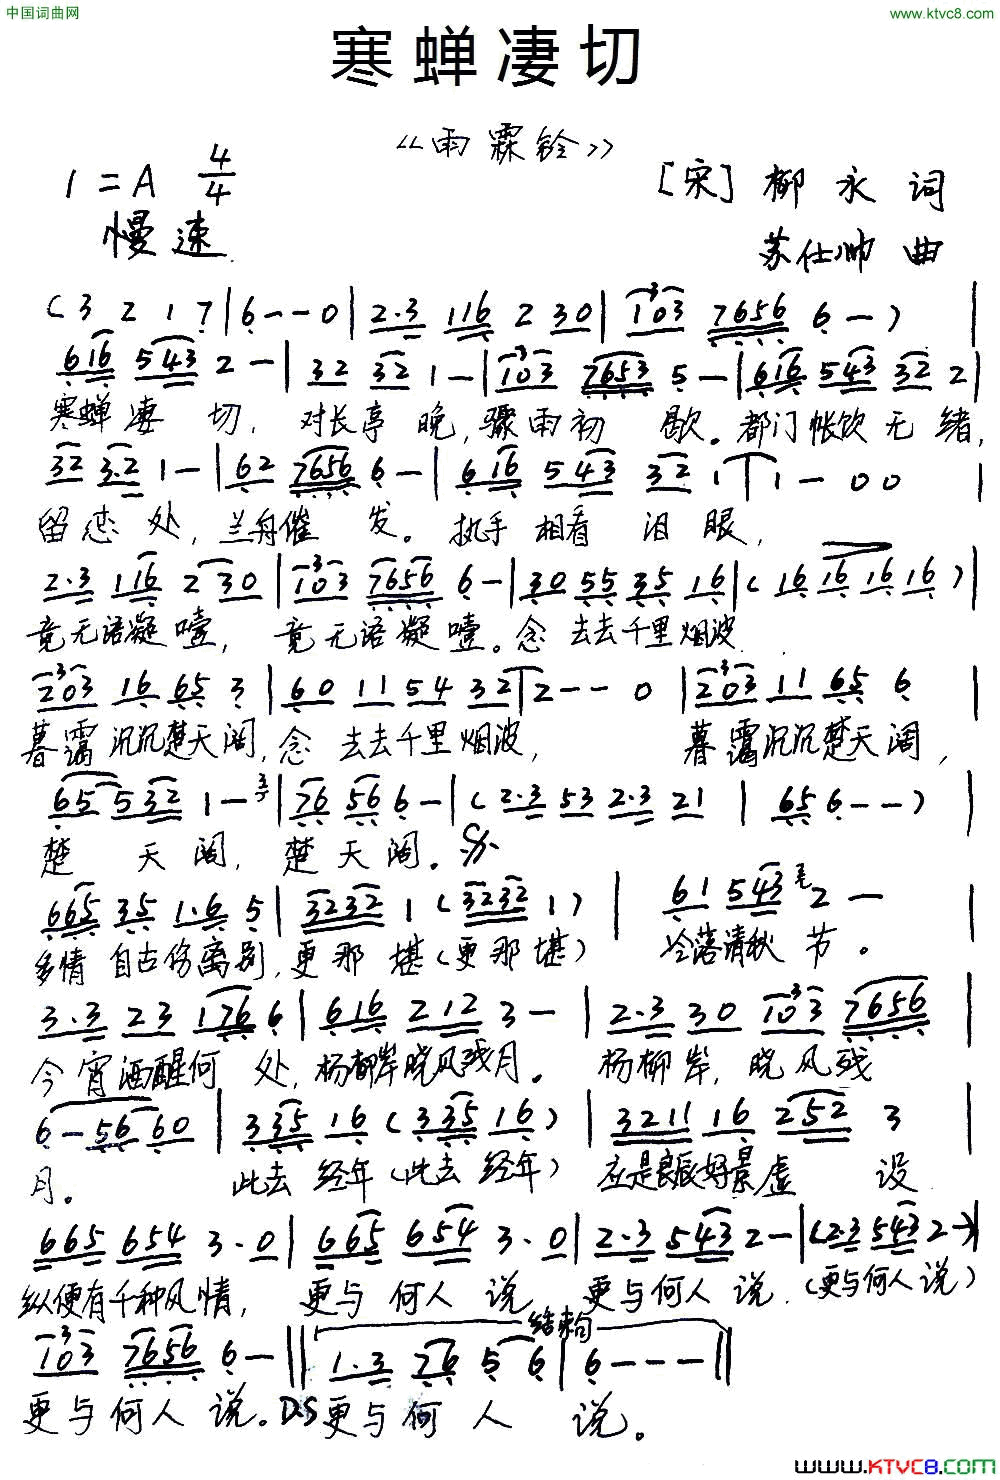 中国词曲网
www.ktvc8.com
寒蝉凄切
《雨霖铃》
1=A 4/4
[宋]柳永词
慢速
苏仕帅曲
(3 2 1 7|6--0|2·3 116 2 30|103 7656 6-)|
616 543 2-|32 32 1-|103 7653 5-|616 543 32 2|
寒蝉凄切,对长亭晚,骤雨初歇。都门帐饮无绪,
32 3·2 1-|62 7656 6-|616 543 32 1|1-00|
留恋处,兰舟催发。执手相看泪眼,
2·3 116 2 30|103 7656 6-|30 55 35 16|(16 16 16 16)|
竟无语凝噎,竟无语凝噎。念去去千里烟波
203 16 65 3|60 11 54 32|2--0|203 11 65 6|
暮霭沉沉楚天阔,念去去千里烟波,暮霭沉沉楚天阔,
65 532 1-|76 56 6-|(2·3 53 2·3 21|65 6--)|
楚天阔,楚天阔。
665 35 1·6 5|3232 1(3232 1)|61 543 2-|
多情自古伤离别,更那堪(更那堪)冷落清秋节。
3·3 23 176 6|616 212 3-|2·3 30 103 7656|
今宵酒醒何处,杨柳岸晓风残月。杨柳岸,晓风残
6-56 60|335 16(335 16)|3211 16 252 3|
月。此去经年(此去经年)应是良辰好景虚设
665 654 3·0|665 654 3·0|2·3 543 2-|(2·3 543 2-)|
纵便有千种风情,更与何人说,更与何人说.(更与何人说)
结束句
103 7656 6-||1·3 76 5 6|6---||
更与何人说。D.S更与何人说。
www.KTVC8.com